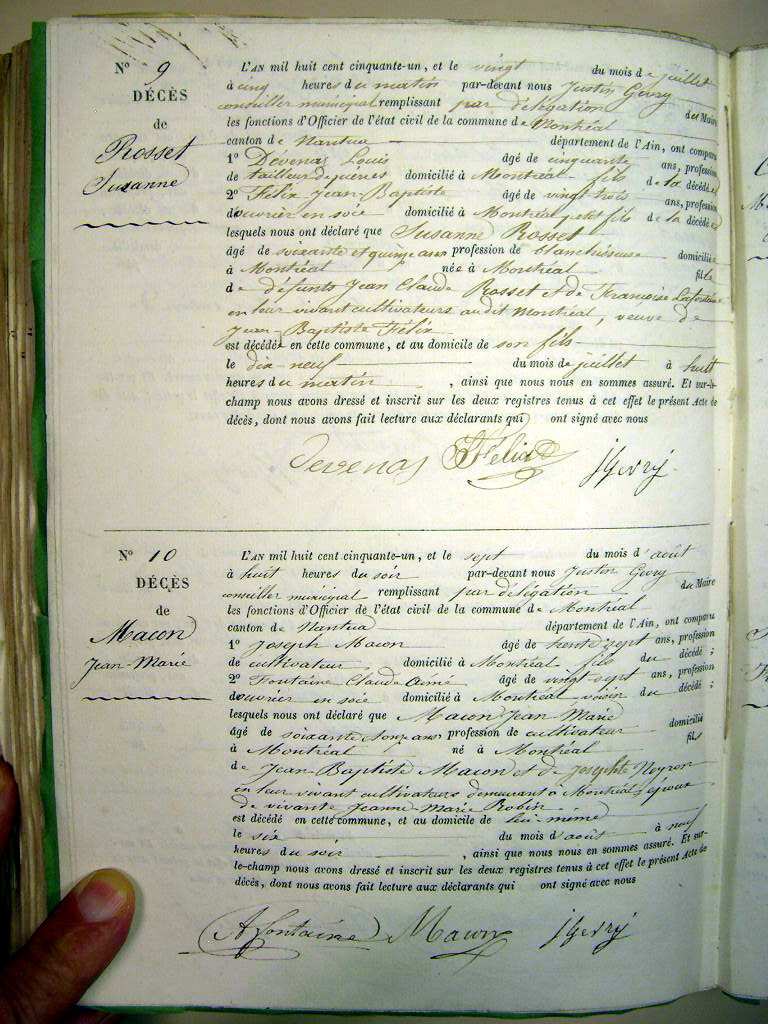 N° 9
DÉCÈS
de
Rosset
Susanne
L'AN mil huit cent cinquante-un, et le vingt du mois de juillet
à cinq heures du matin par-devant nous Justin Gevry
conseiller municipal remplissant par délégation du Maire
les fonctions d'Officier de l'état civil de la commune de Montréal
canton de Nantua département de l'Ain, ont comparu
1° Devenas Louis âgé de cinquante ans, profession
de tailleur de pierres domicilié à Montréal fils de la décédée
2° Félix Jean-Baptiste âgé de vingt trois ans, profession
d'ouvrier en soie domicilié à Montréal petit fils de la décédée
lesquels nous ont déclaré que Susanne Rosset
âgé de soixante et quinze ans profession de blanchisseuse domiciliée
à Montréal née à Montréal fille
de défunts Jean Claude Rosset et de Françoise
en leur vivant cultivateurs audit Montréal, veuve de
Jean-Baptiste Félix
est décédée en cette commune, et au domicile de son fils
le dix-neuf du mois de juillet à huit
heures du matin, ainsi que nous nous en sommes assuré. Et sur-le-
champ nous avons dressé et inscrit sur les deux registres tenus à cet effet le présent Acte de
décès, dont nous avons fait lecture aux déclarants qui ont signé avec nous
Devenas Félix JGevry
N° 10
DÉCÈS
de
Macon
Jean-Marie
L'AN mil huit cent cinquante-un, et le sept du mois d'août
à huit heures du soir par-devant nous Justin Gevry
conseiller municipal remplissant par délégation du Maire
les fonctions d'Officier de l'état civil de la commune de Montréal
canton de Nantua département de l'Ain, ont comparu
1° Joseph Macon âgé de trente sept ans, profession
de cultivateur domicilié à Montréal fils du décédé ;
2° Fontaine Claude Aimé âgé de vingt-sept ans, profession
d'ouvrier en soie domicilié à Montréal voisin du décédé ;
lesquels nous ont déclaré que Macon Jean Marie
âgé de soixante onze ans profession de cultivateur domicilié
à Montréal né à Montréal fils
de Jean-Baptiste Macon et de Josephte Neyron
en leur vivant cultivateurs demeurant à Montréal, époux
de vivante Jeanne-Marie Robin
est décédé en cette commune, et au domicile de lui-même
le six du mois d'août à neuf
heures du soir, ainsi que nous nous en sommes assuré. Et sur-
le-champ nous avons dressé et inscrit sur les deux registres tenus à cet effet le présent Acte de
décès, dont nous avons fait lecture aux déclarants qui ont signé avec nous
A fontaine Macon JGevry